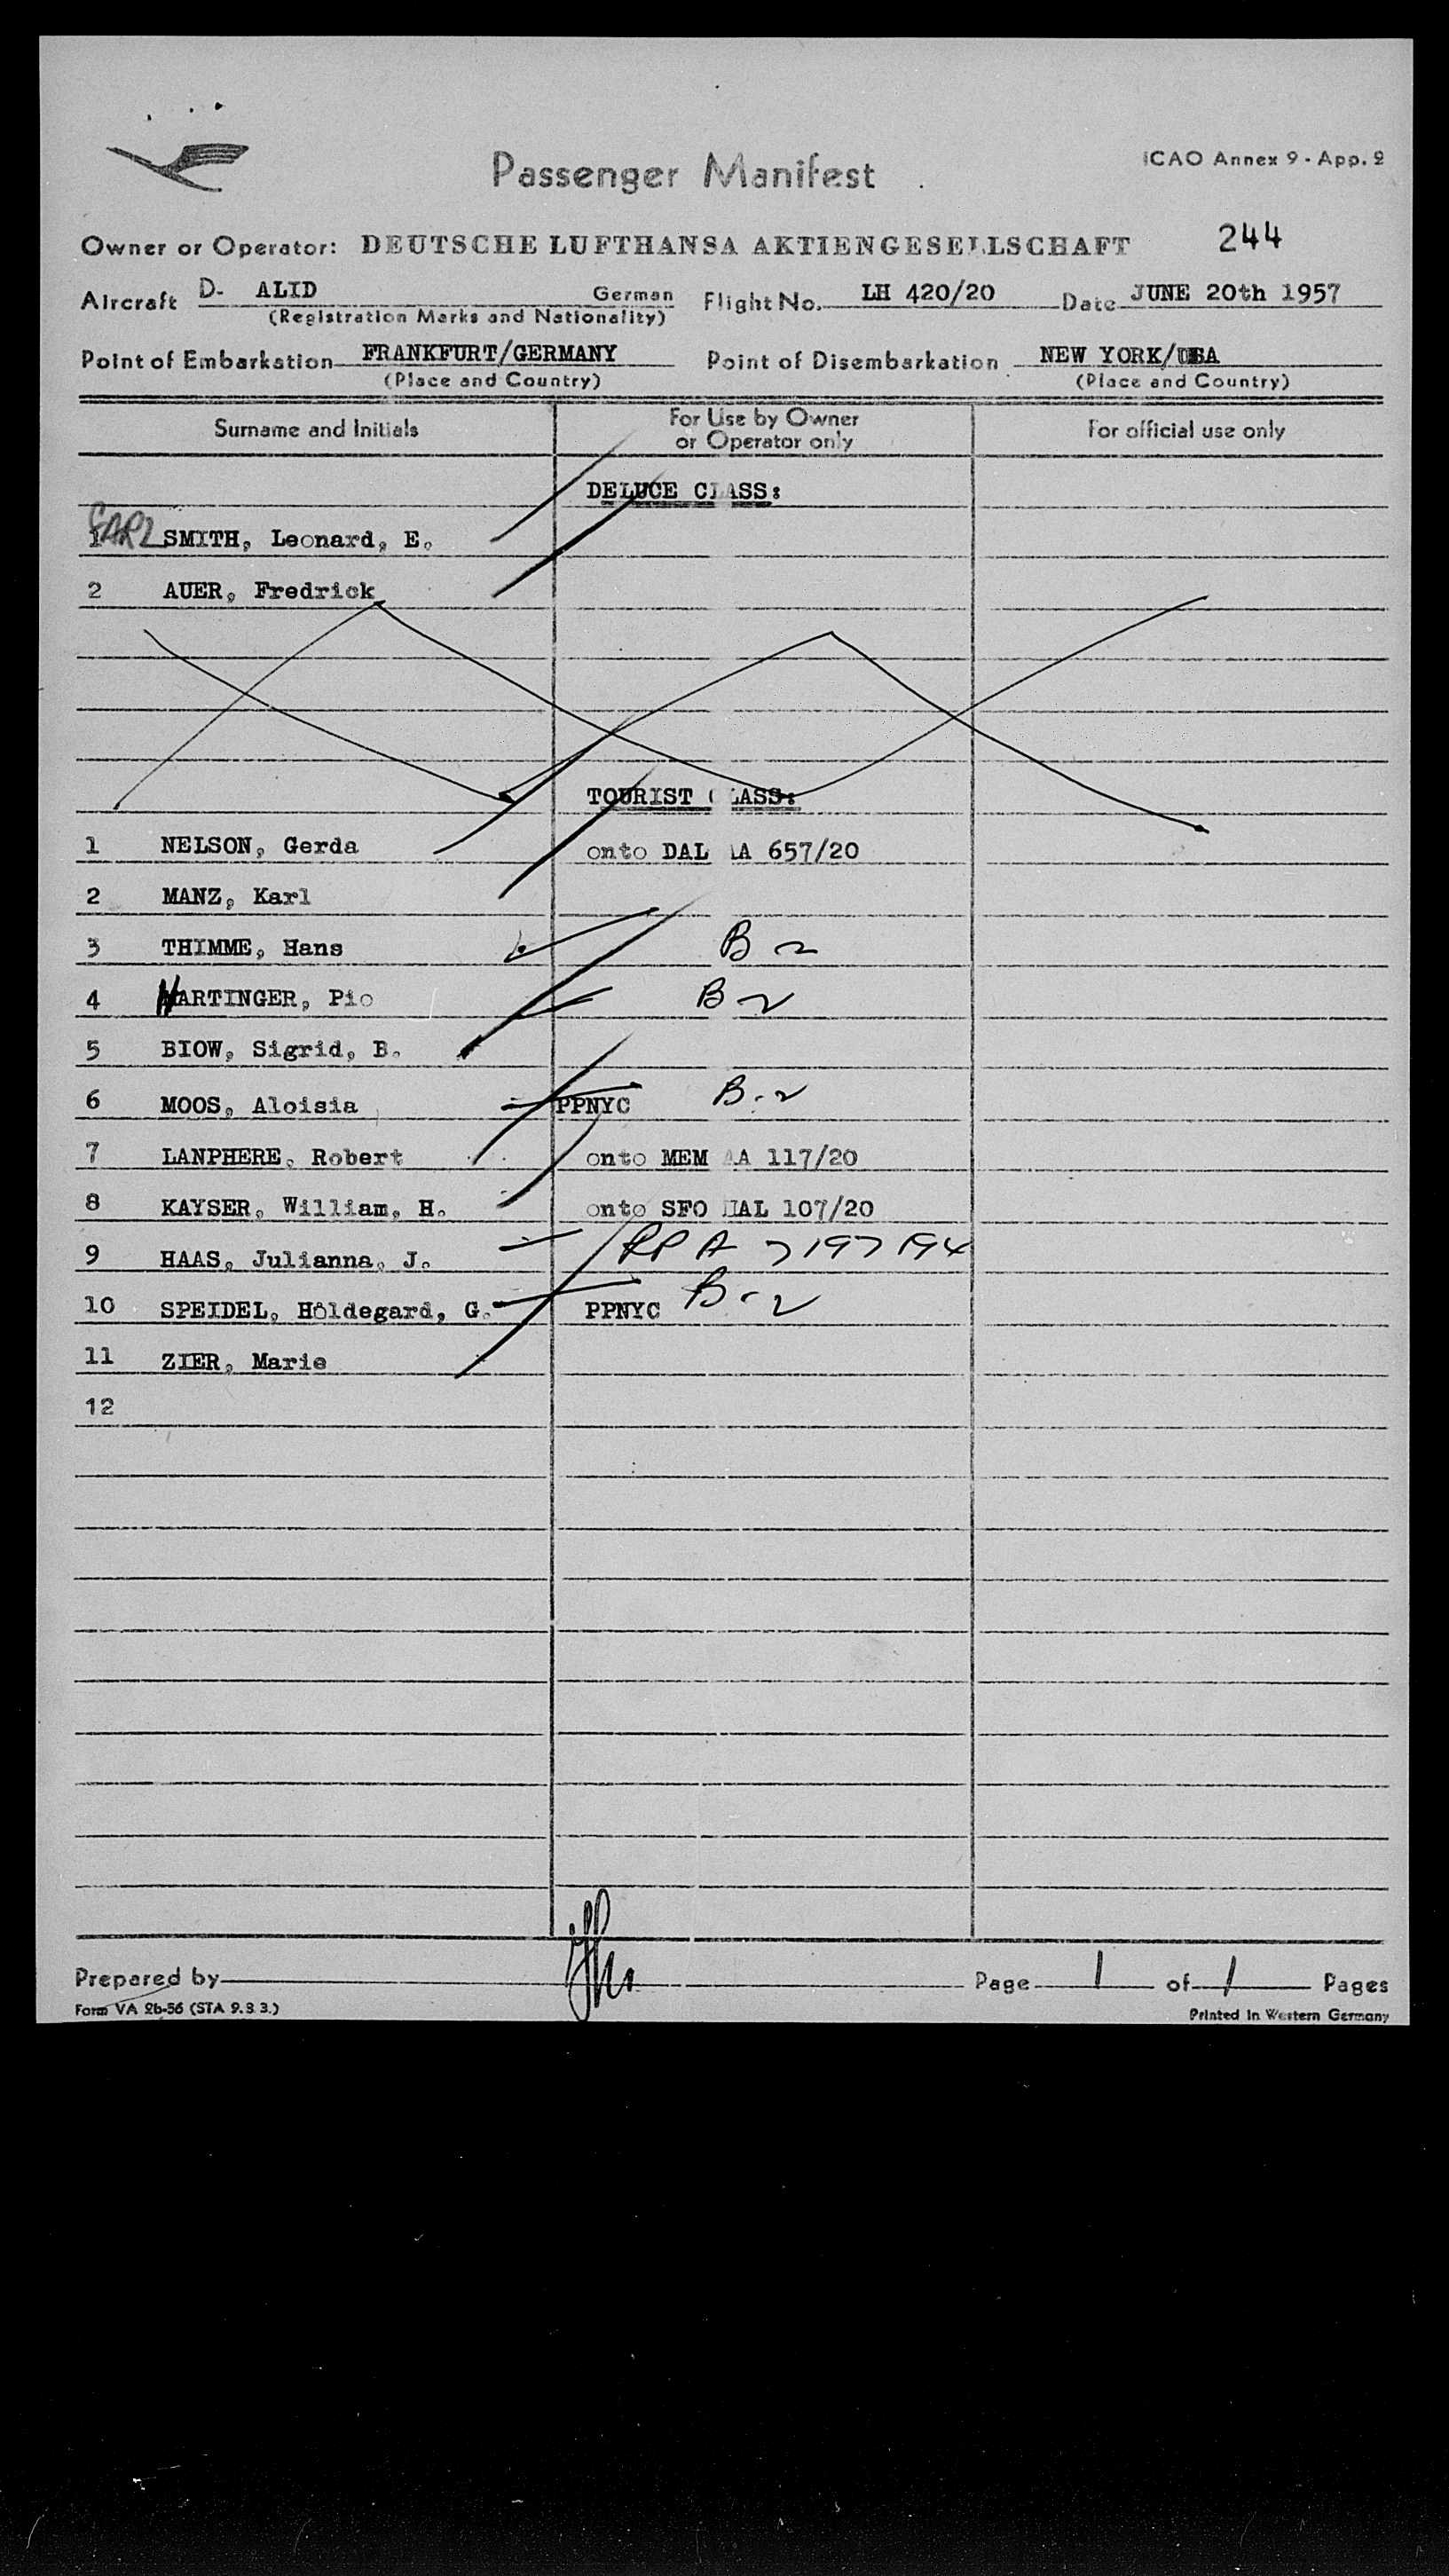 Passenger Manifest
ICAO Annex 9 - App. 2
Owner or Operator: DEUTSCHE LUFTHANSA AKTIENGESELLSCHAFT 244
Aircraft D- ALID German Flight No. LH 420/20 Date JUNE 20th 1957
(Registration Marks and Nationality)
Point of Embarkation FRANKFURT/GERMANY Point of Disembarkation NEW YORK/USA
(Place and Country) (Place and Country)
Surname and Initials For Use by Owner or Operator only For official use only
DELUCE CLASS:
1 CARL SMITH, Leonard, E.
2 AUER, Fredrick
TOURIST CLASS:
1 NELSON, Gerda onto DAL AA 657/20
2 MANZ, Karl
3 THIMME, Hans B-2
4 HARTINGER, Pio B-2
5 BIOW, Sigrid, B.
6 MOOS, Aloisia PPNYC B-2
7 LANPHERE, Robert onto MEM AA 117/20
8 KAYSER, William, H. onto SFO UAL 107/20
9 HAAS, Julianna, J. RPA 7197194
10 SPEIDEL, Hildegard, G. PPNYC B-2
11 ZIER, Marie
12
Prepared by Page 1 of 1 Pages
Form VA 2b-56 (STA 9.3.3.) Printed in Western Germany